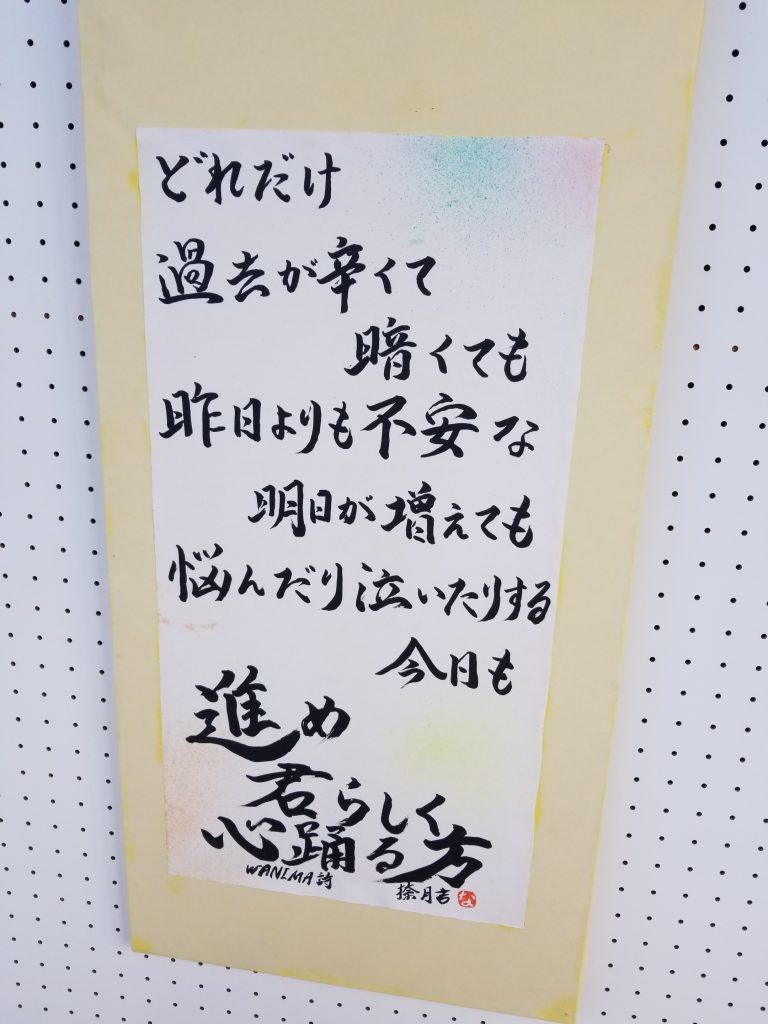 どれだけ
過去が辛くて
暗くても
昨日よりも不安な
明日が増えても
悩んだり泣いたりする
今日も
進め
君らしく
心踊る方
WANIMA詩
捺月書
な